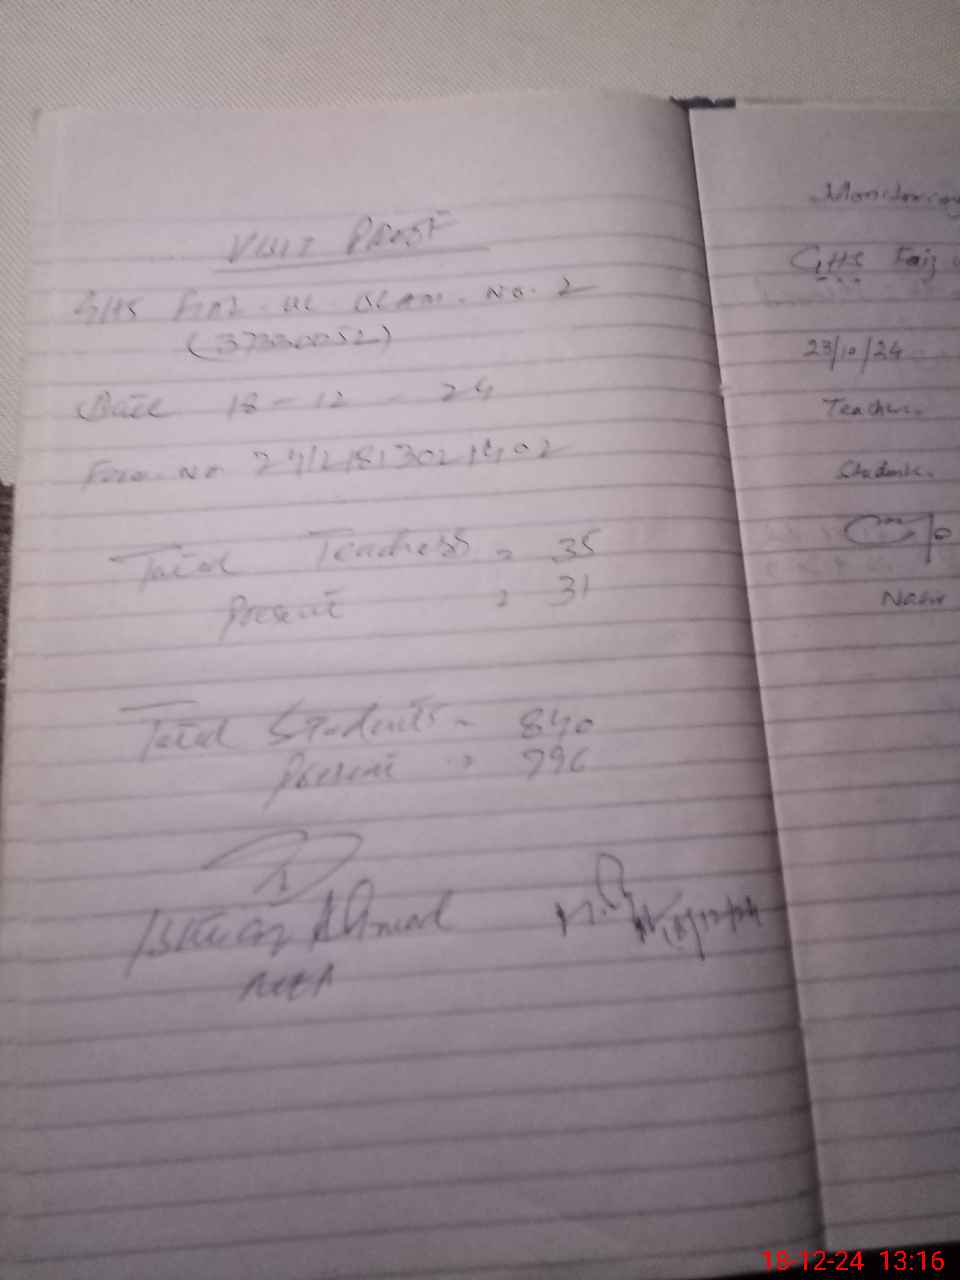 VISIT PROOF
GHS Faiz. ul. Islam. No. 2
(37330052)
Date 18 - 12 - 24
Form. No
Total Teachers = 35
Present = 31
Total Students = 840
Present = 796
Ahmad
MEA
Monitoring
GHS Faiz
23/10/24
Teachers.
Students.
18-12-24 13:16